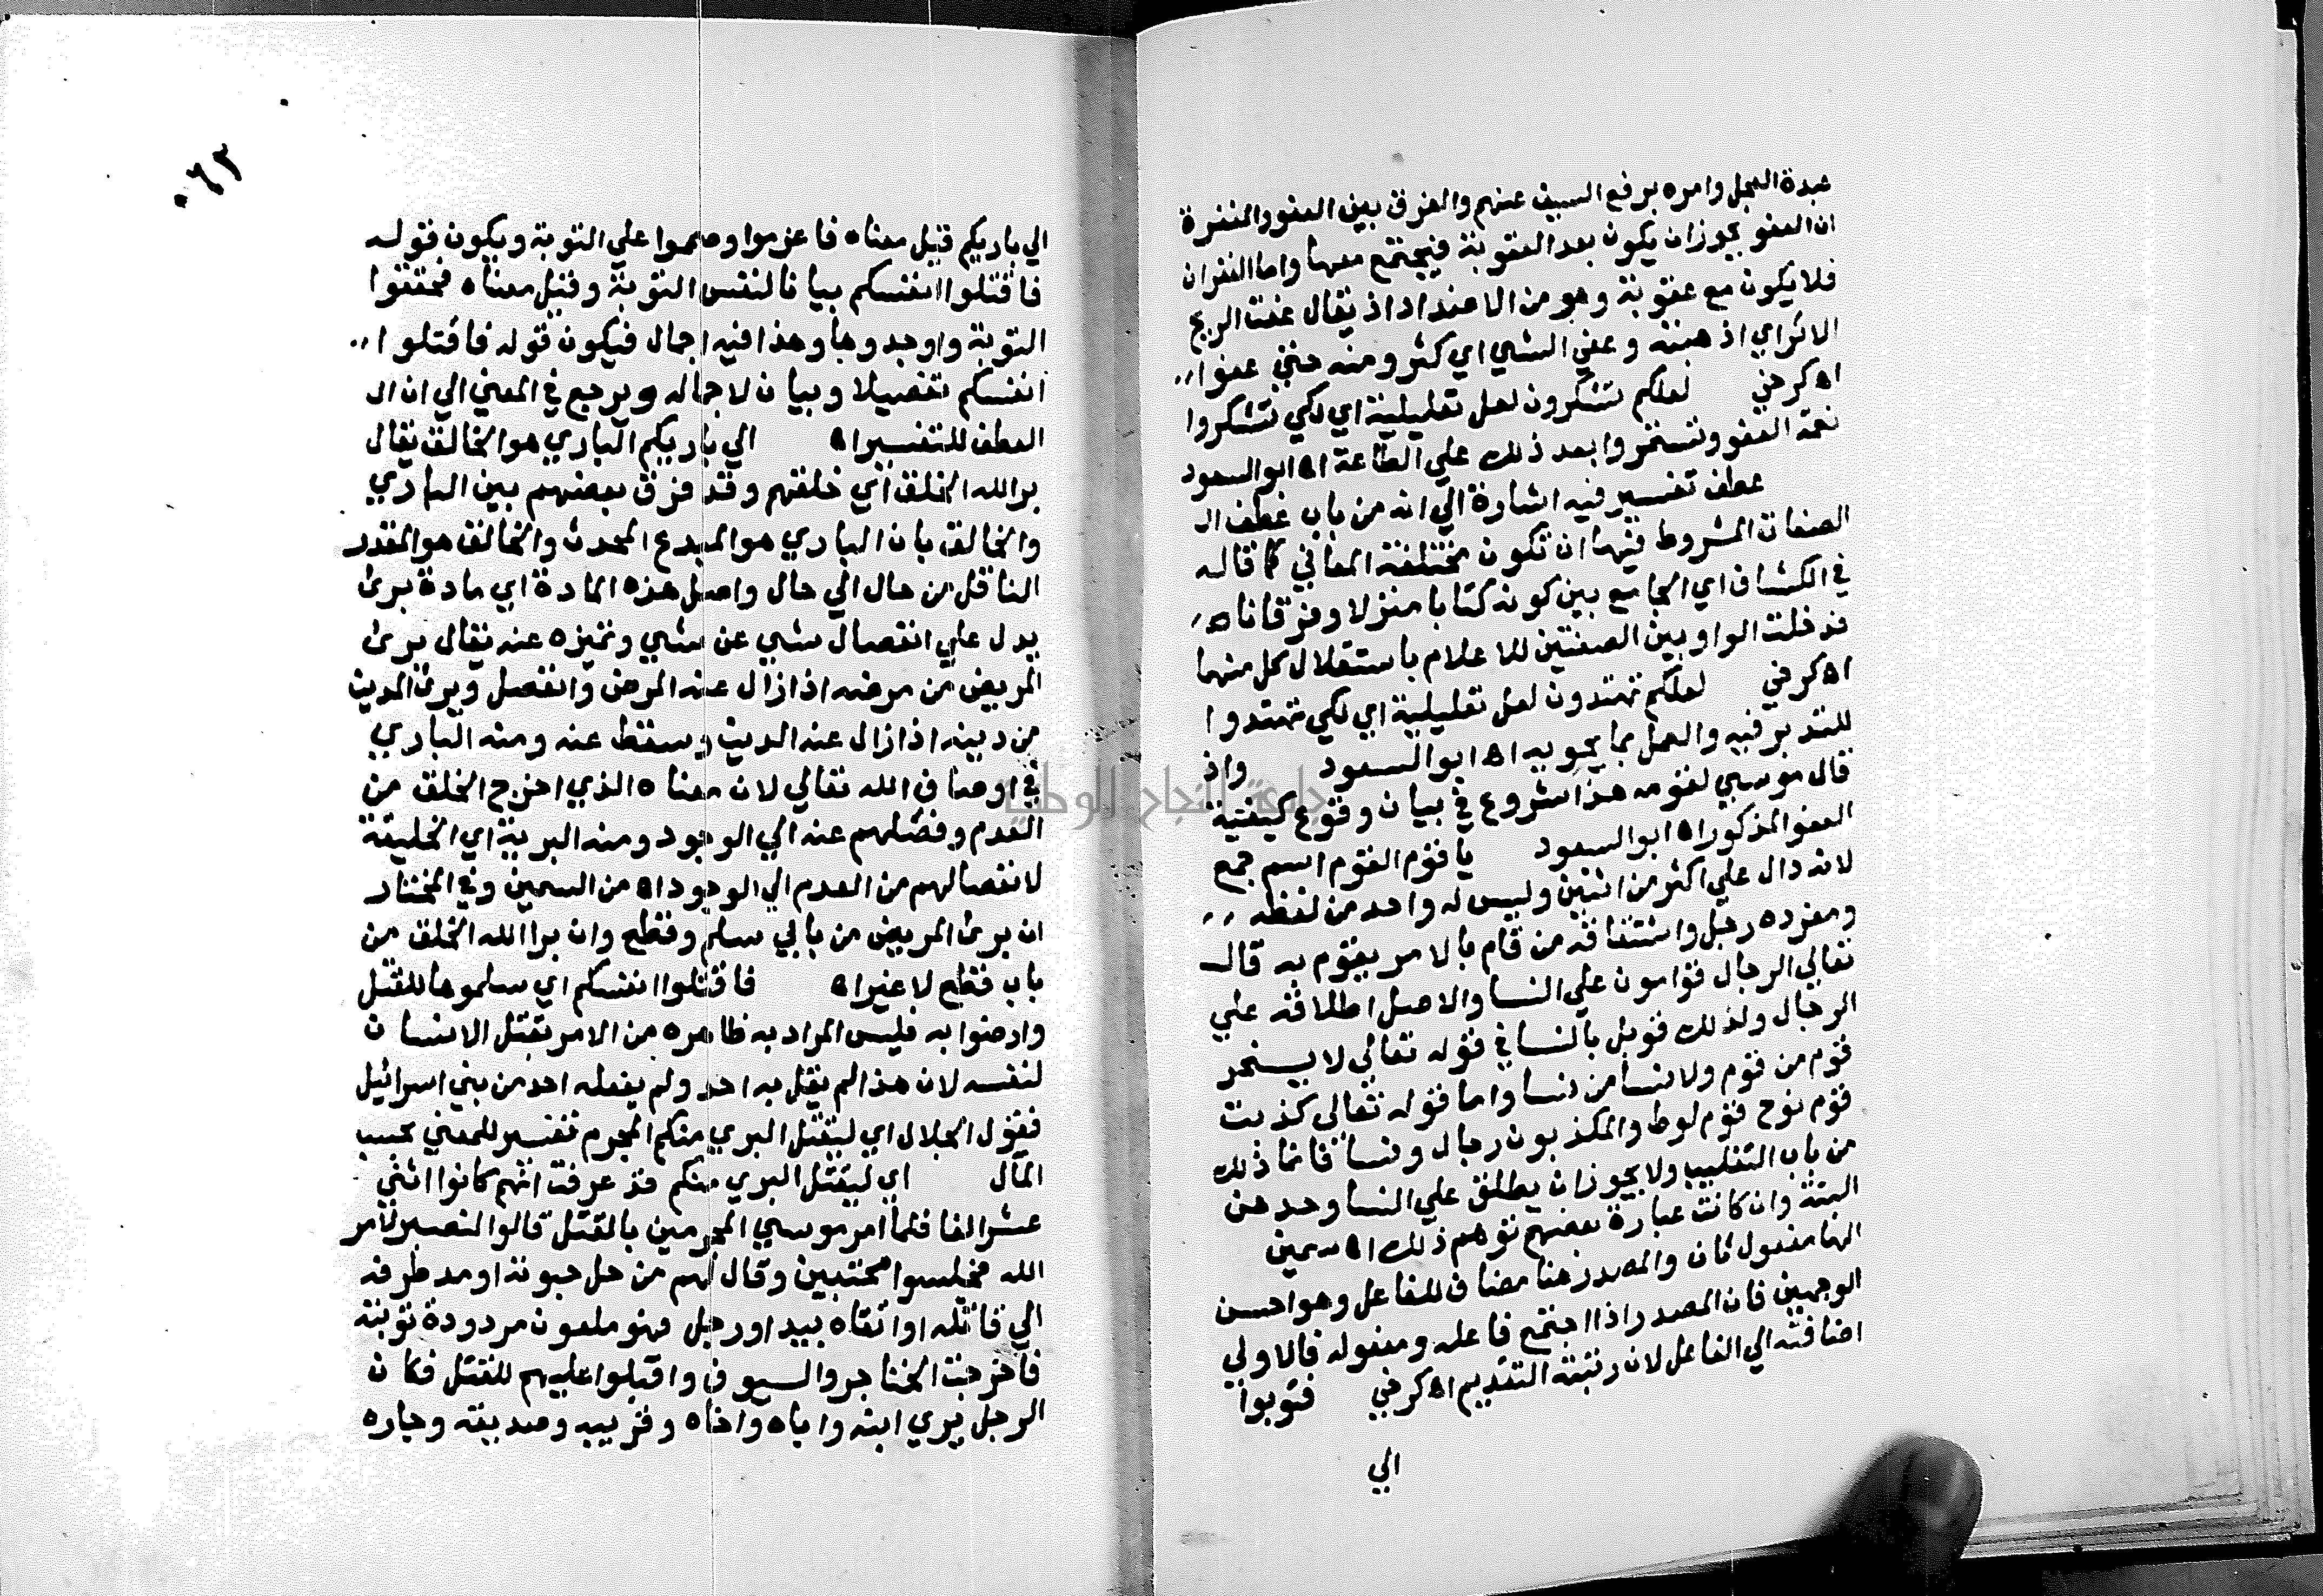 عبدة العجل وامره برفع السيف عنهم والفرق بين العفو والمغفرة
ان العفو يجوز ان يكون بعد العقوبة فيجتمع معها واما الغفران
فلا يكون مع عقوبة وهو من الاضداد اذ يقال عفت الريح
الاثر اي اذهبته وعفي الشي اي كثر ومنه حتي عفوا
اه كرخي لعلكم تشكرون لعل تعليلية اي لكي تشكروا
نعمة العفو وتستمروا بعد ذلك علي الطاعة اه ابو السعود
عطف تفسير فيه اشارة الي انه من باب عطف ال
الصفات المشروط فيها ان تكون مختلفة المعاني كما قاله
في الكشاف اي الجامع بين كونه كتابا منزلا وفرقانا اه
فدخلت الواو بين الصفتين للاعلام باستقلال كل منهما
اه كرخي لعلكم تهتدون لعل تعليلية اي لكي تهتدوا
للتدبر فيه والعمل بما يحويه اه ابو السعود واذ
قال موسي لقومه هذا شروع في بيان وقوع كيفية
العفو المذكور اه ابو السعود يا قوم القوم اسم جمع
لانه دال علي اكثر من اثنين وليس له واحد من لفظه
ومفرده رجل واشتقاقه من قام بالامر يقوم به قال
تعالي الرجال قوامون علي النسا والاصل اطلاقه علي
الرجال ولذلك قوبل بالنسا في قوله تعالي لا يسخر
قوم من قوم ولا نسا من نسا واما قوله تعالي كذبت
قوم نوح قوم لوط والمكذبون رجال ونسا فانما ذلك
من باب التغليب ولا يجوز ان يطلق علي النسا وحدهن
البتة وان كانت عبارة بعضهم توهم ذلك اه سمين
الها مفعول ثان والمصدر هنا مضاف للفاعل وهو احسن
الوجهين فان المصدر اذا اجتمع فاعله ومفعوله فالاولي
اضافته الي الفاعل لان رتبته التقديم اه كرخي فتوبوا
الي
٠٦٣
الي باريكم قيل معناه فاعزموا وصمموا علي التوبة ويكون قوله
فاقتلوا انفسكم بيانا لنفس التوبة وقيل معناه فحققوا
التوبة واوجدوها وهذا فيه اجمال فيكون قوله فاقتلوا
انفسكم تفصيلا وبيان لاجماله ويرجع في المعني الي ان ال
العطف للتفسير اه الي باريكم الباري هو الخالق يقال
برا الله الخلق اي خلقهم وقد فرق بعضهم بين الباري
والخالق بان الباري هو المبدع المحدث والخالق هو المقدر
الناقل من حال الي حال واصل هذه المادة اي مادة برئ
يدل علي انفصال شي عن شي وتميزه عنه يقال برئ
المريض من مرضه اذا زال عنه المرض وانفصل وبرئ المدين
من دينه اذا زال عنه الدين وسقط عنه ومنه الباري
في اوصاف الله تعالي لان معناه الذي اخرج الخلق من
العدم وفصلهم عنه الي الوجود ومنه البرية اي الخليقة
لانفصالهم من العدم الي الوجود اه من السمين وفي المختار
ان برئ المريض من بابي سلم وقطع وان برا الله الخلق من
باب قطع لا غير اه فاقتلوا انفسكم اي سلموها للقتل
وارضوا به فليس المراد به ظاهره من الامر بقتل الانسان
لنفسه لان هذا لم يقل به احد ولم يفعله احد من بني اسرائيل
فقول الجلال اي ليقتل البري منكم المجرم تفسير للمعني بحسب
المآل اي ليقتل البري منكم قد عرفت انهم كانوا اثني
عشر الفا فلما امر موسي المجرمين بالقتل قالوا نصبر لامر
الله فجلسوا محتبين وقال لهم من حل حبوته او مد طرفه
الي قاتله او اتقاه بيد او رجل فهو ملعون مردودة توبته
فاخرجت الخناجر والسيوف واقبلوا عليهم للقتل فكان
الرجل يري ابنه واباه واخاه وقريبه وصديقه وجاره
جامعة النجاح الوطنية